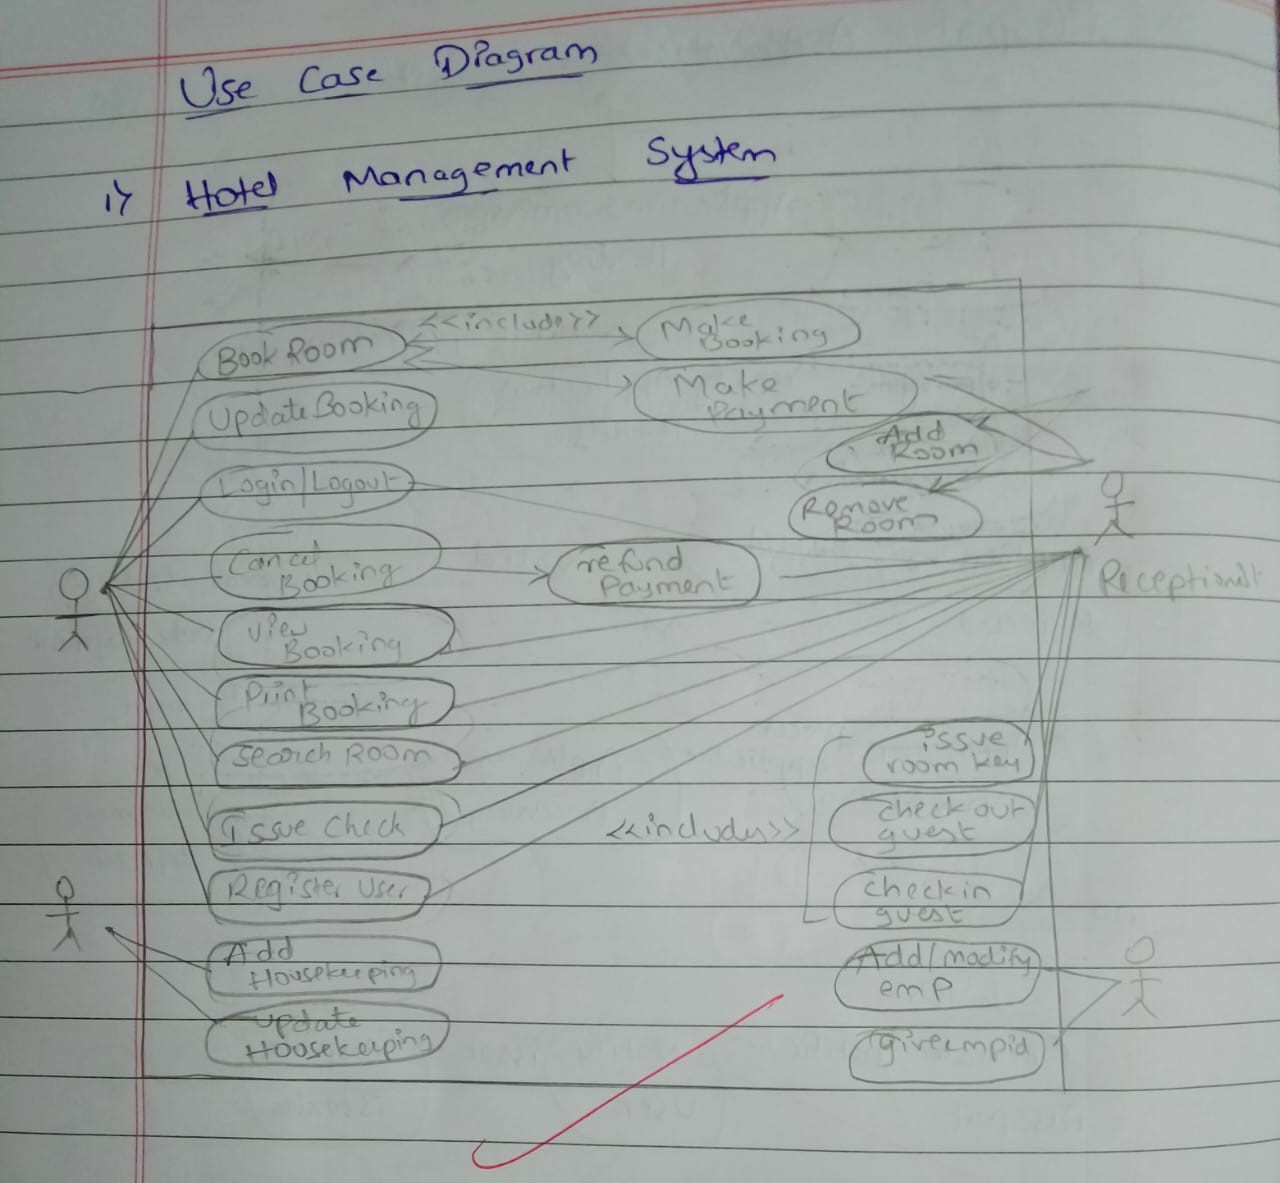 Use Case Diagram
1) Hotel Management System
Book Room
<<include>>
Make
Booking
Make
Payment
Update Booking
Add
Room
Login/Logout
Remove
Room
Cancel
Booking
refund
Payment
View
Booking
Print
Booking
Search Room
issue
room key
Issue Check
<<include>>
check out
guest
Register User
check in
guest
Add
Housekeeping
Add/modify
emp
Update
Housekeeping
give empid